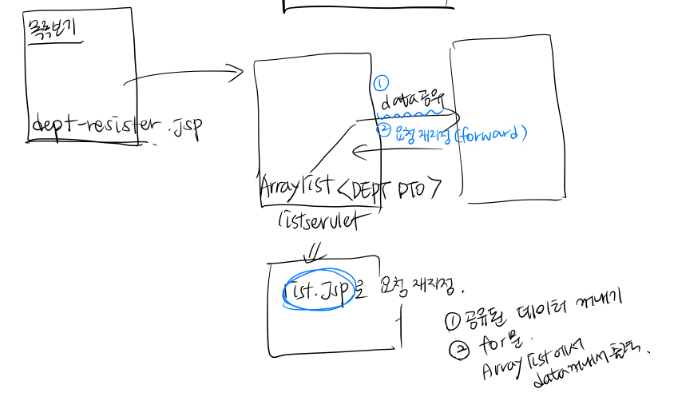 목록보기
dept-resister.jsp
①
data공유
② 요청 재지정(forward)
Arraylist<DEPT DTO>
listservlet
list.jsp을 요청 재지정.
① 공유된 데이터 꺼내기
② for문.
Arraylist에서
data꺼내서 출력.